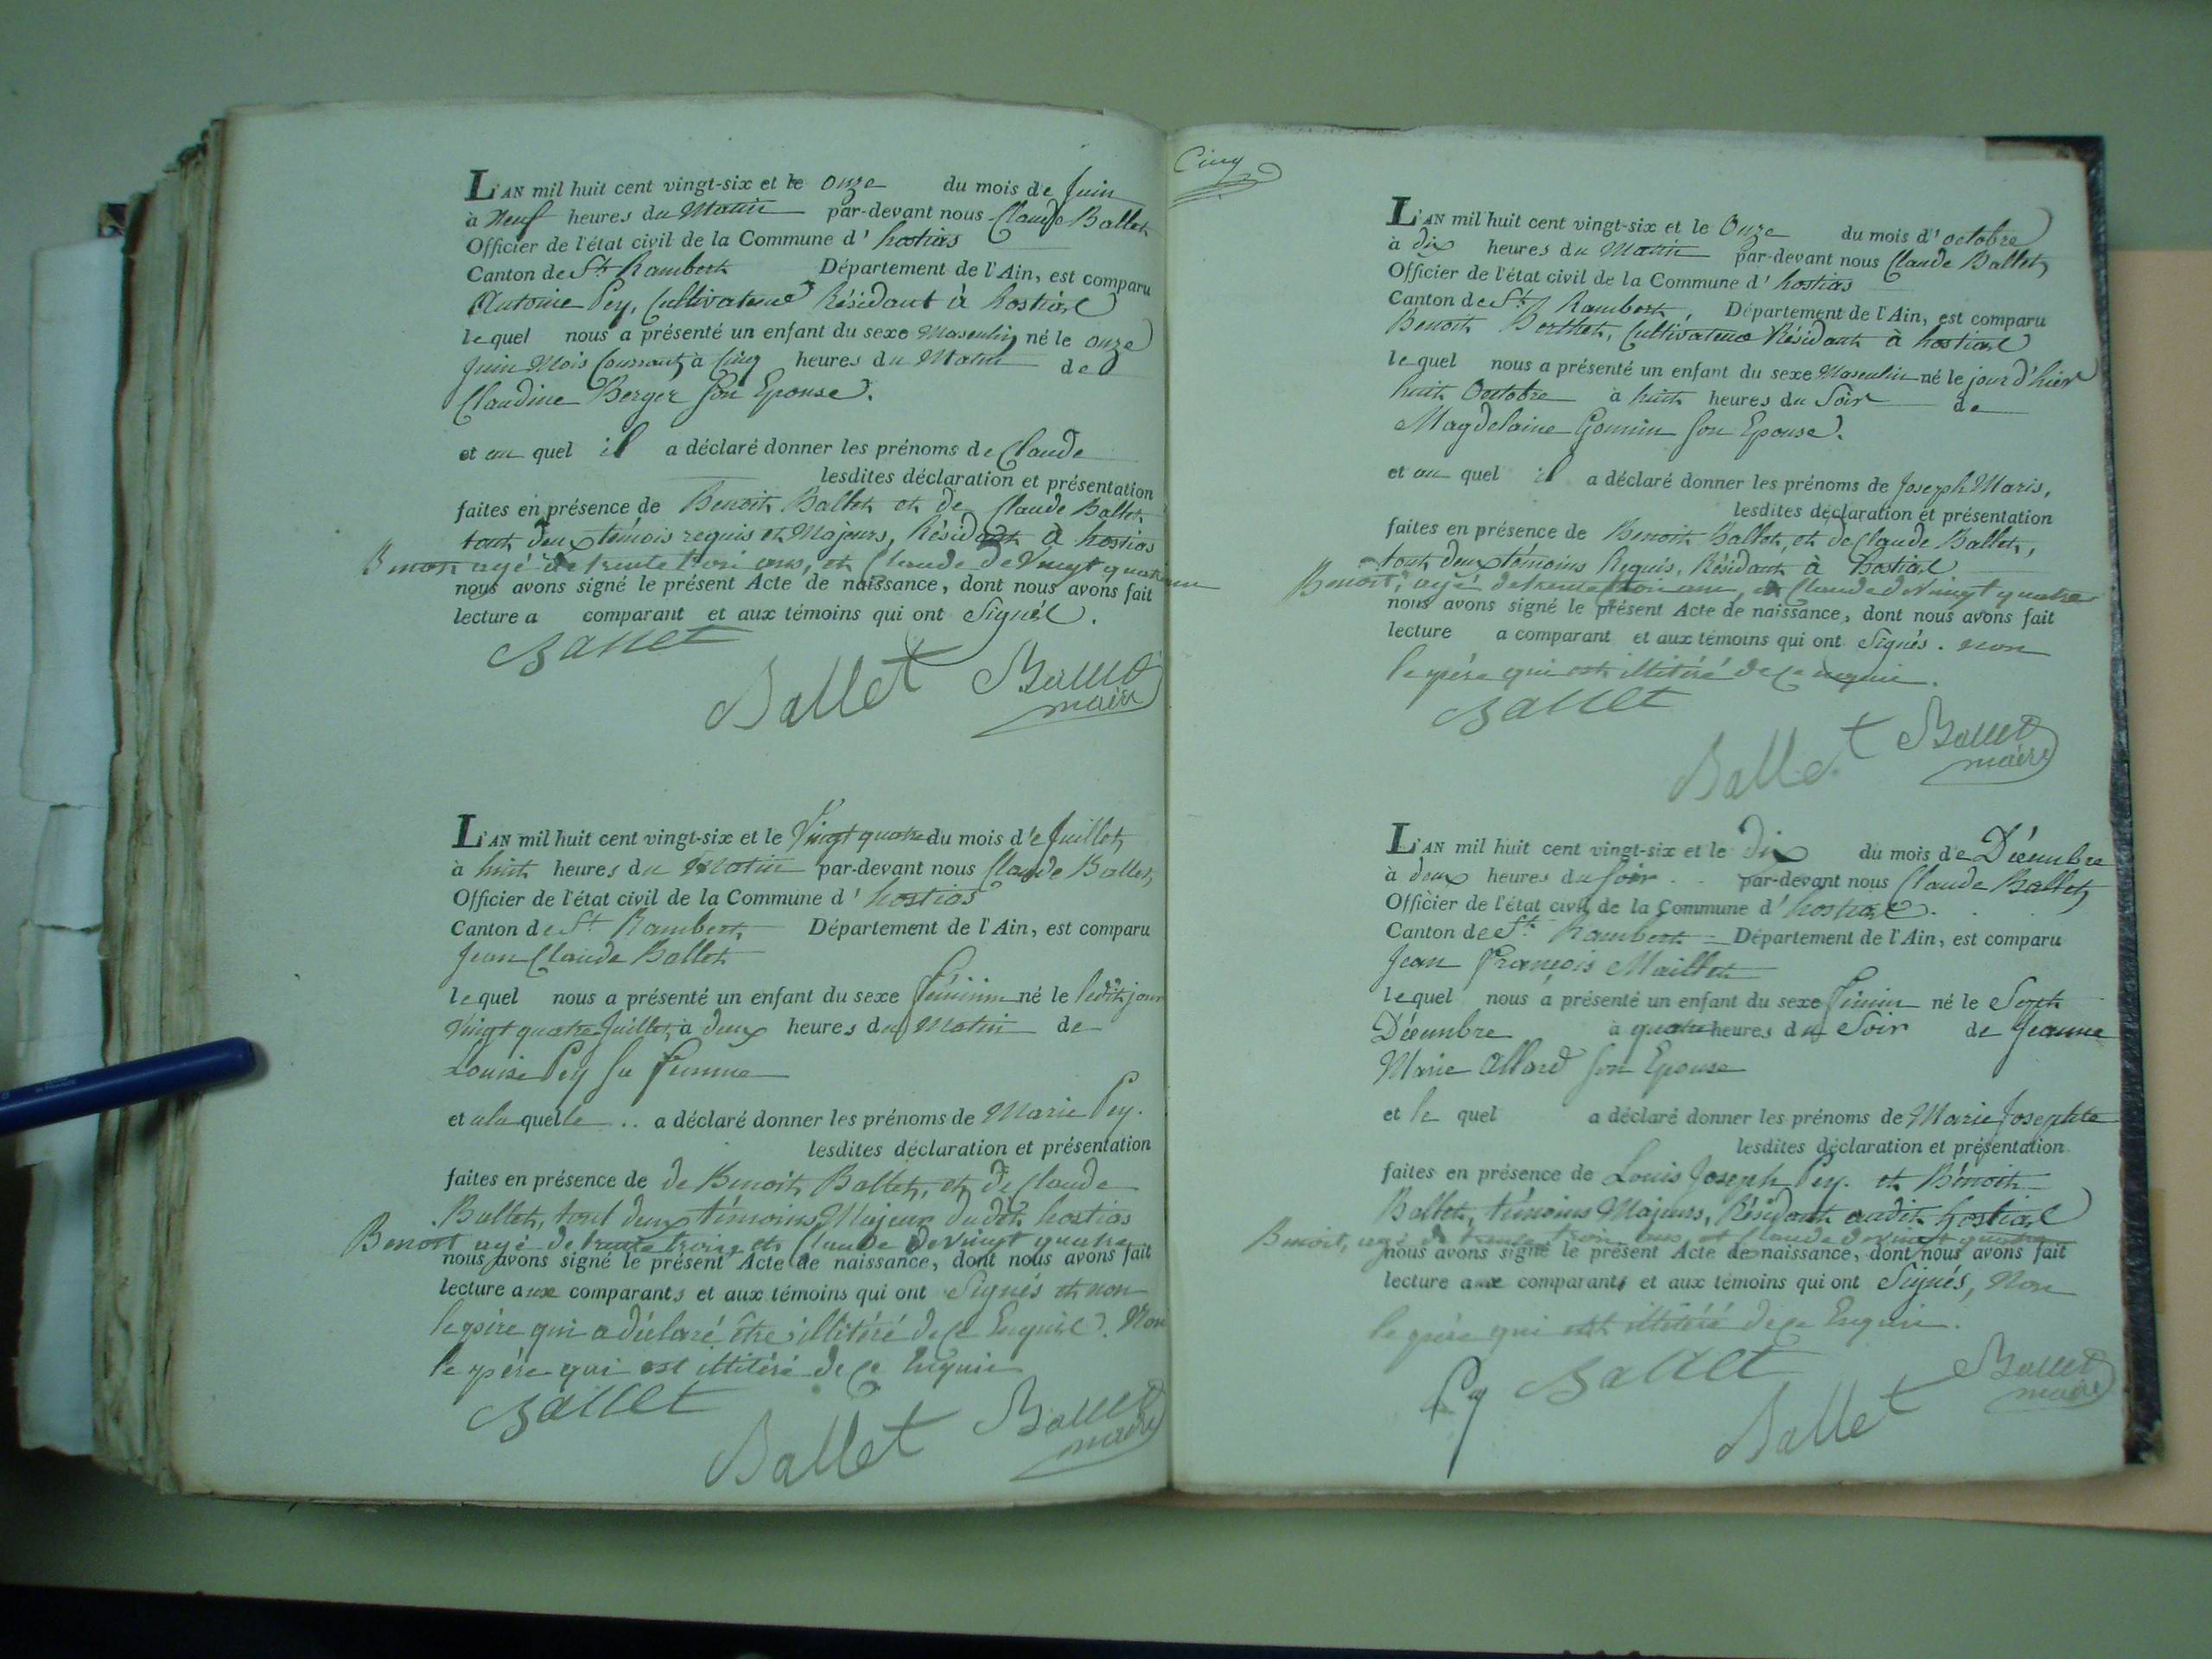 L'AN mil huit cent vingt-six et le onze du mois de Juin
à Neuf heures du Matin par-devant nous Claude Ballet
Officier de l'état civil de la Commune d' hostias
Canton de St Rambert Département de l'Ain, est comparu
Antoine Pey, Cultivateur Résidant à hostias
lequel nous a présenté un enfant du sexe Masculin né le onze
Juin Mois Courrant, à Cinq heures du Matin de
Claudine Berger son Epouse.
et au quel il a déclaré donner les prénoms de Claude
lesdites déclaration et présentation
faites en présence de Benoit Ballet et de Claude Ballet
tout deux témois requis et Majeurs, Résidant à hostias
Benoit agé de trente trois ans, et Claude de Vingt quatre
nous avons signé le présent Acte de naissance, dont nous avons fait
lecture a comparant et aux témoins qui ont Signés.
Ballet
Ballet Ballet
maire
L'AN mil huit cent vingt-six et le Vingt quatre du mois de Juillet
à huit heures du Matin par-devant nous Claude Ballet
Officier de l'état civil de la Commune d' hostias
Canton de St Rambert Département de l'Ain, est comparu
Jean Claude Ballet
lequel nous a présenté un enfant du sexe féminin né le ledit jour
Vingt quatre Juillet, à deux heures du Matin de
Louise Pey sa femme
et ala quelle .. a déclaré donner les prénoms de Marie Pey.
lesdites déclaration et présentation
faites en présence de de Benoit Ballet, et de Claude
Ballet, tout deux témoins Majeur dudit hostias
Benoit agé de trente trois et Claude de Vingt quatre
nous avons signé le présent Acte de naissance, dont nous avons fait
lecture aux comparants et aux témoins qui ont Signés et non
le père qui a déclaré être illitéré de ce Enquis. Non
le père qui est illitéré de ce Enquis
Ballet
Ballet Ballet
maire
Cinq
L'AN mil huit cent vingt-six et le Onze du mois d'octobre
à dix heures du Matin par-devant nous Claude Ballet
Officier de l'état civil de la Commune d' hostias
Canton de St Rambert, Département de l'Ain, est comparu
Benoit Berthet, Cultivateur Résidant à hostias
lequel nous a présenté un enfant du sexe Masculin né le jour d'hier
huit Octobre à huit heures du Soir de
Magdelaine Gonnin son Epouse.
et au quel il a déclaré donner les prénoms de Joseph Maris,
lesdites déclaration et présentation
faites en présence de Benoit Ballet, et de Claude Ballet,
tout deux témoins Requis, Résidant à hostias
Benoit, agé de trente trois ans, et Claude de Vingt quatre
nous avons signé le présent Acte de naissance, dont nous avons fait
lecture a comparant et aux témoins qui ont Signés. non
le père qui est illitéré de ce enquis.
Ballet
Ballet Ballet
maire
L'AN mil huit cent vingt-six et le dix du mois de Décembre
à deux heures du soir . . par-devant nous Claude Ballet
Officier de l'état civil de la Commune d' hostias.
Canton de St Rambert Département de l'Ain, est comparu
Jean François Maillet
lequel nous a présenté un enfant du sexe féminin né le Sept
Décembre à quatre heures du Soir de Jeanne
Marie Allard son Epouse
et le quel a déclaré donner les prénoms de Marie Josephte
lesdites déclaration et présentation
faites en présence de Louis Joseph Pey. et Bénoit
Ballet, témoins Majeurs, Résidant audit hostias
Benoit, agé de trente trois ans, et Claude de vingt quatre
nous avons signé le présent Acte de naissance, dont nous avons fait
lecture aux comparants et aux témoins qui ont Signés, Non
le père qui est illitéré de ce Enquis.
Py Ballet Ballet
maire
Ballet